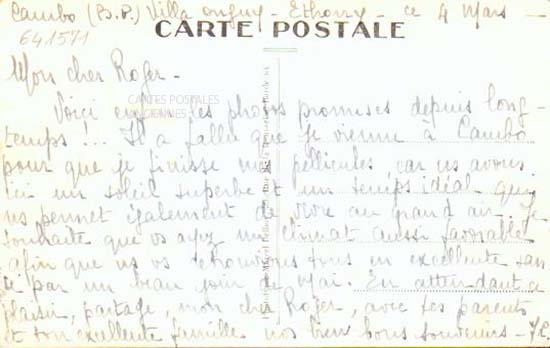 Cambo (B.P.) Villa - Ethorry - ce 4 Mars -
641571
CARTE POSTALE
Mon cher Roger -
CARTES POSTALES
ANCIENNES
Voici enfin les photos promises depuis long-
temps !... Il a fallu que je vienne à Cambo
pour que je finisse mes pellicules, car ns avons
ici un soleil superbe et un temps idéal qui
ns permet également de vivre au grand air. Je
souhaite que vs ayez un climat aussi favorable
afin que ns vs retrouvions tous en excellente san
té par un beau jour de Mai. En attendant ce
plaisir, partage, mon cher Roger, avec tes parents
et ton excellente famille nos bien bons souvenirs -